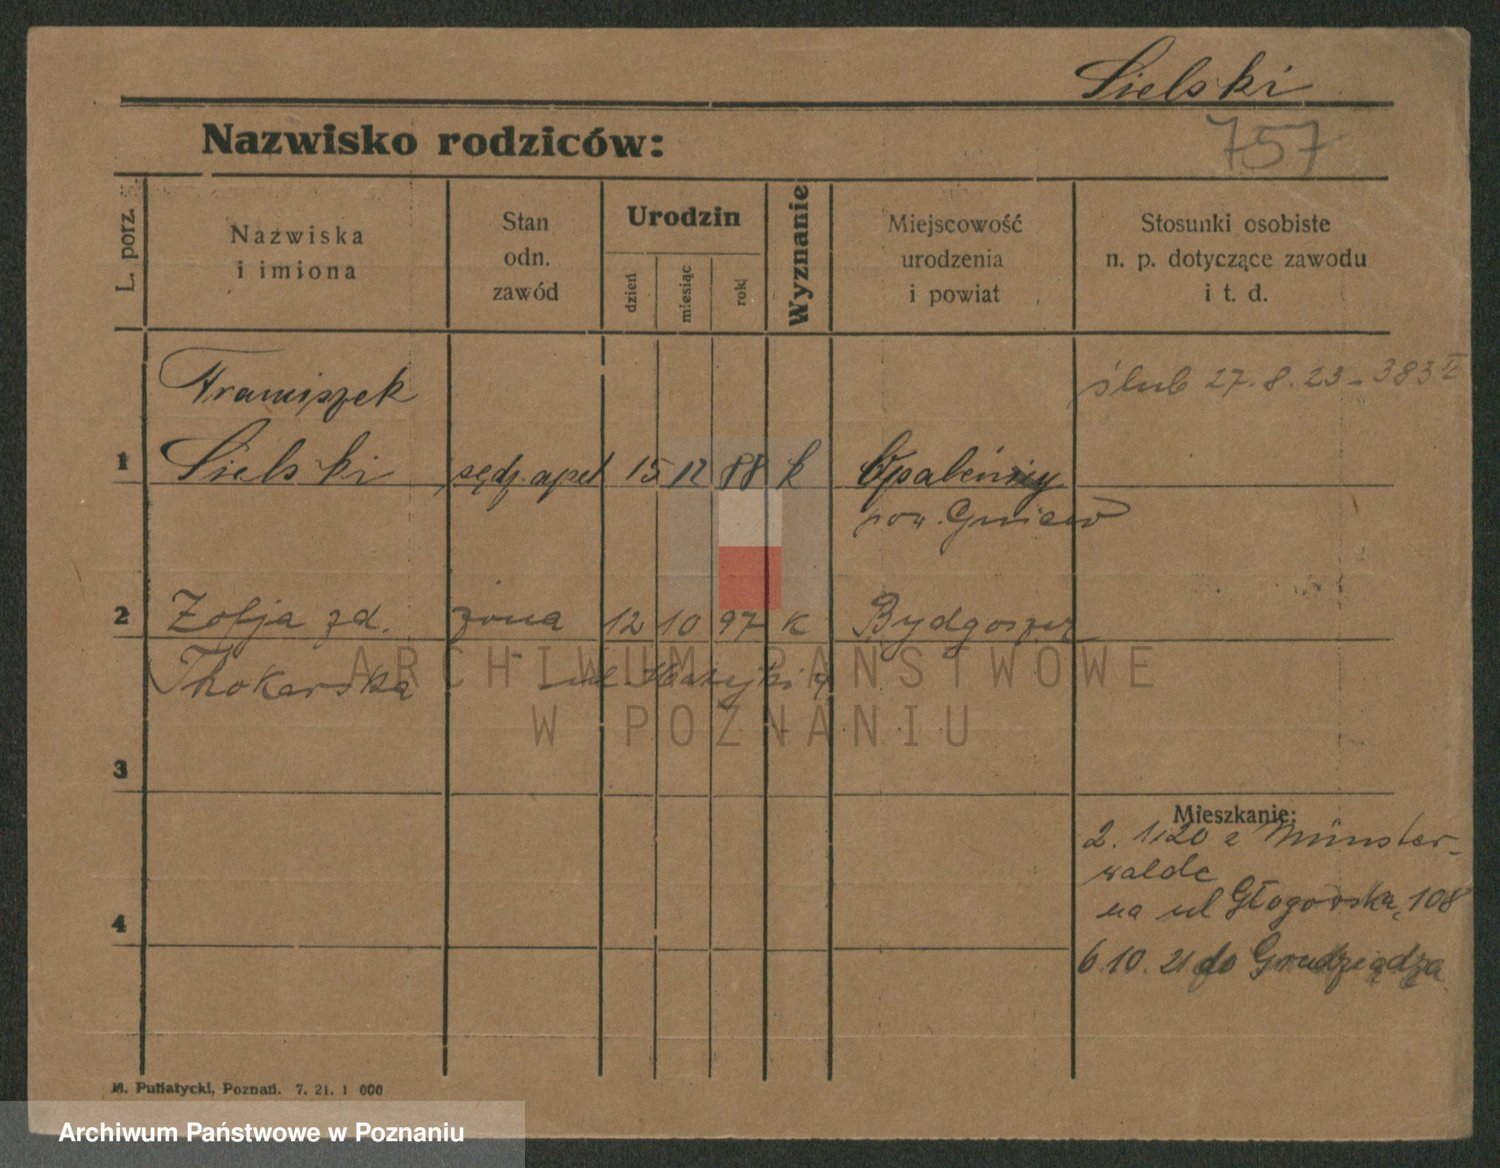 Sielski
Nazwisko rodziców:
757
L. porz.
Nazwiska
i imiona
Stan
odn.
zawód
Urodzin
dzień
miesiąc
rok
Wyznanie
Miejscowość
urodzenia
i powiat
Stosunki osobiste
n. p. dotyczące zawodu
i t. d.
Franciszek
ślub 27.8.23 - 383 II
1 Sielski sędz. apel 15 12 88 k
pow. Gniew
2 Zofja zd. żona 12 10 97 k Bydgoszcz
Thokarska
ARCHIWUM PAŃSTWOWE
W POZNANIU
3
Mieszkanie:
2. 1.20 z Münster-
walde
na ul Głogowska, 108
4
6.10.21 do Grudziądza
M. Putiatycki, Poznań. 7. 21. 1 000
Archiwum Państwowe w Poznaniu